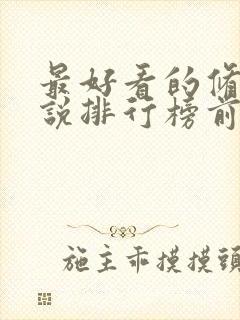 最好看的脩
說排行榜前
施主乖摸摸頭